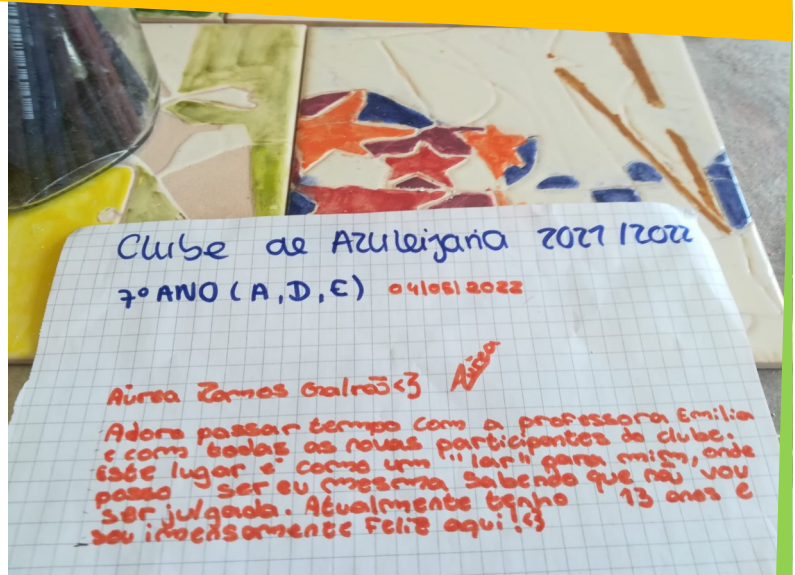 Clube de Azuleijaria 2021/2022
7º ANO (A, D, E) 04/05/2022
Aúrea Galrão <3 Aúrea
Adoro passar tempo com a professora Emilia
e com todas as novas participantes do clube,
este lugar é como um "lar" para mim, onde
posso ser eu mesma sabendo que não vou
ser julgada. Atualmente tenho 13 anos e
sou imensamente Feliz aqui! <3